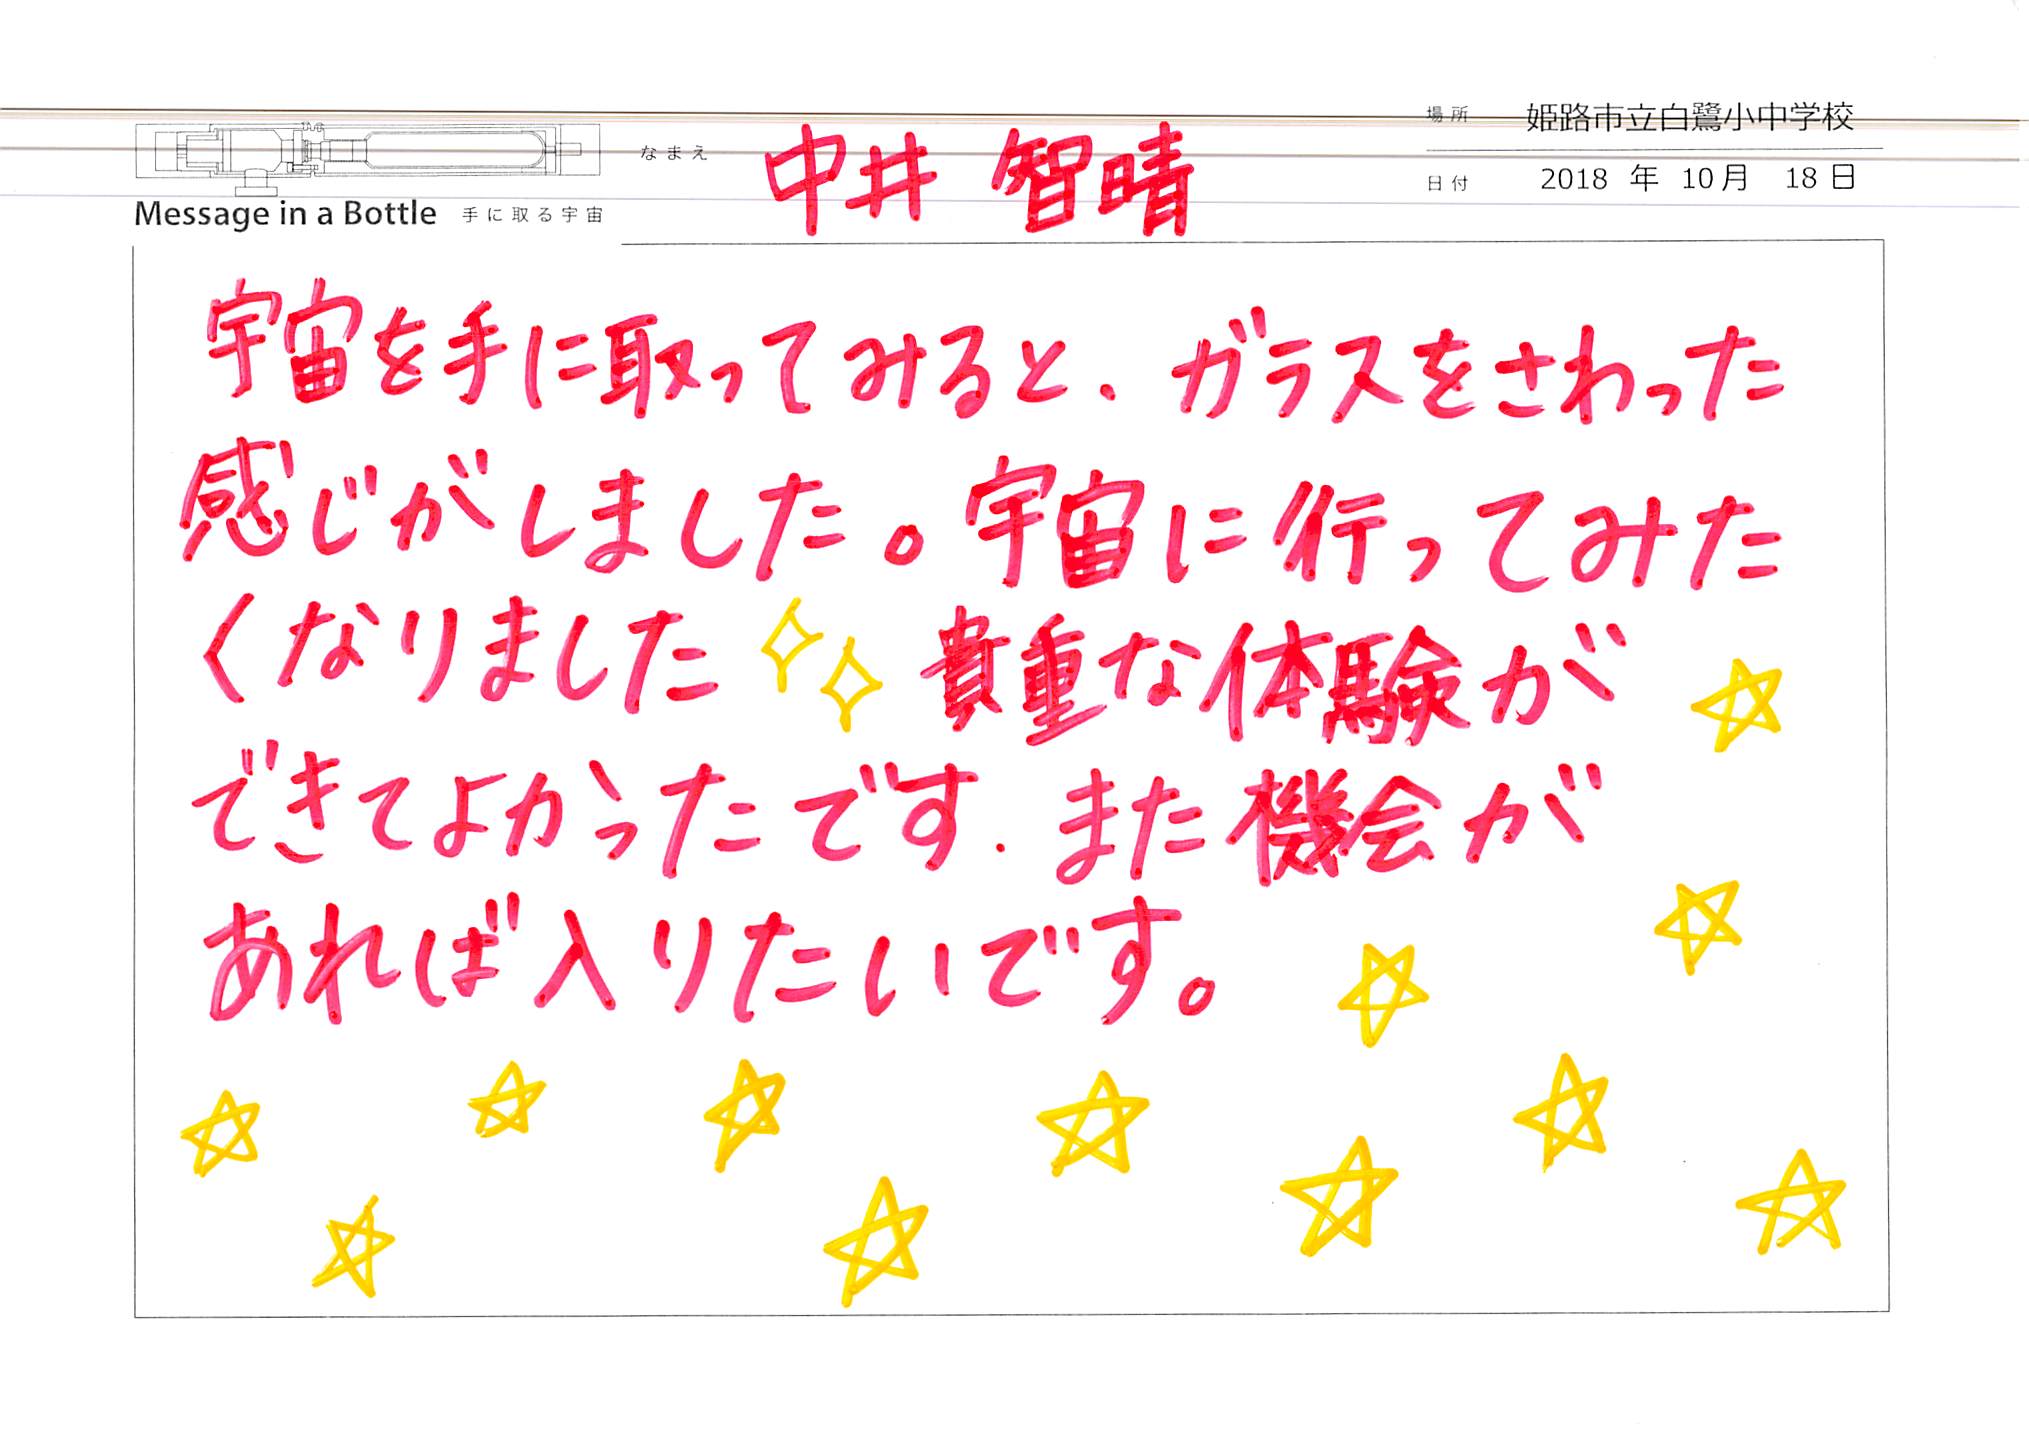 場所 姫路市立白鷺小中学校
なまえ 中井 智晴
日付 2018 年 10 月 18 日
Message in a Bottle 手に取る宇宙
宇宙を手に取ってみると、ガラスをさわった
感じがしました。宇宙に行ってみた
くなりました 貴重な体験が
できてよかったです. また機会が
あれば入りたいです。